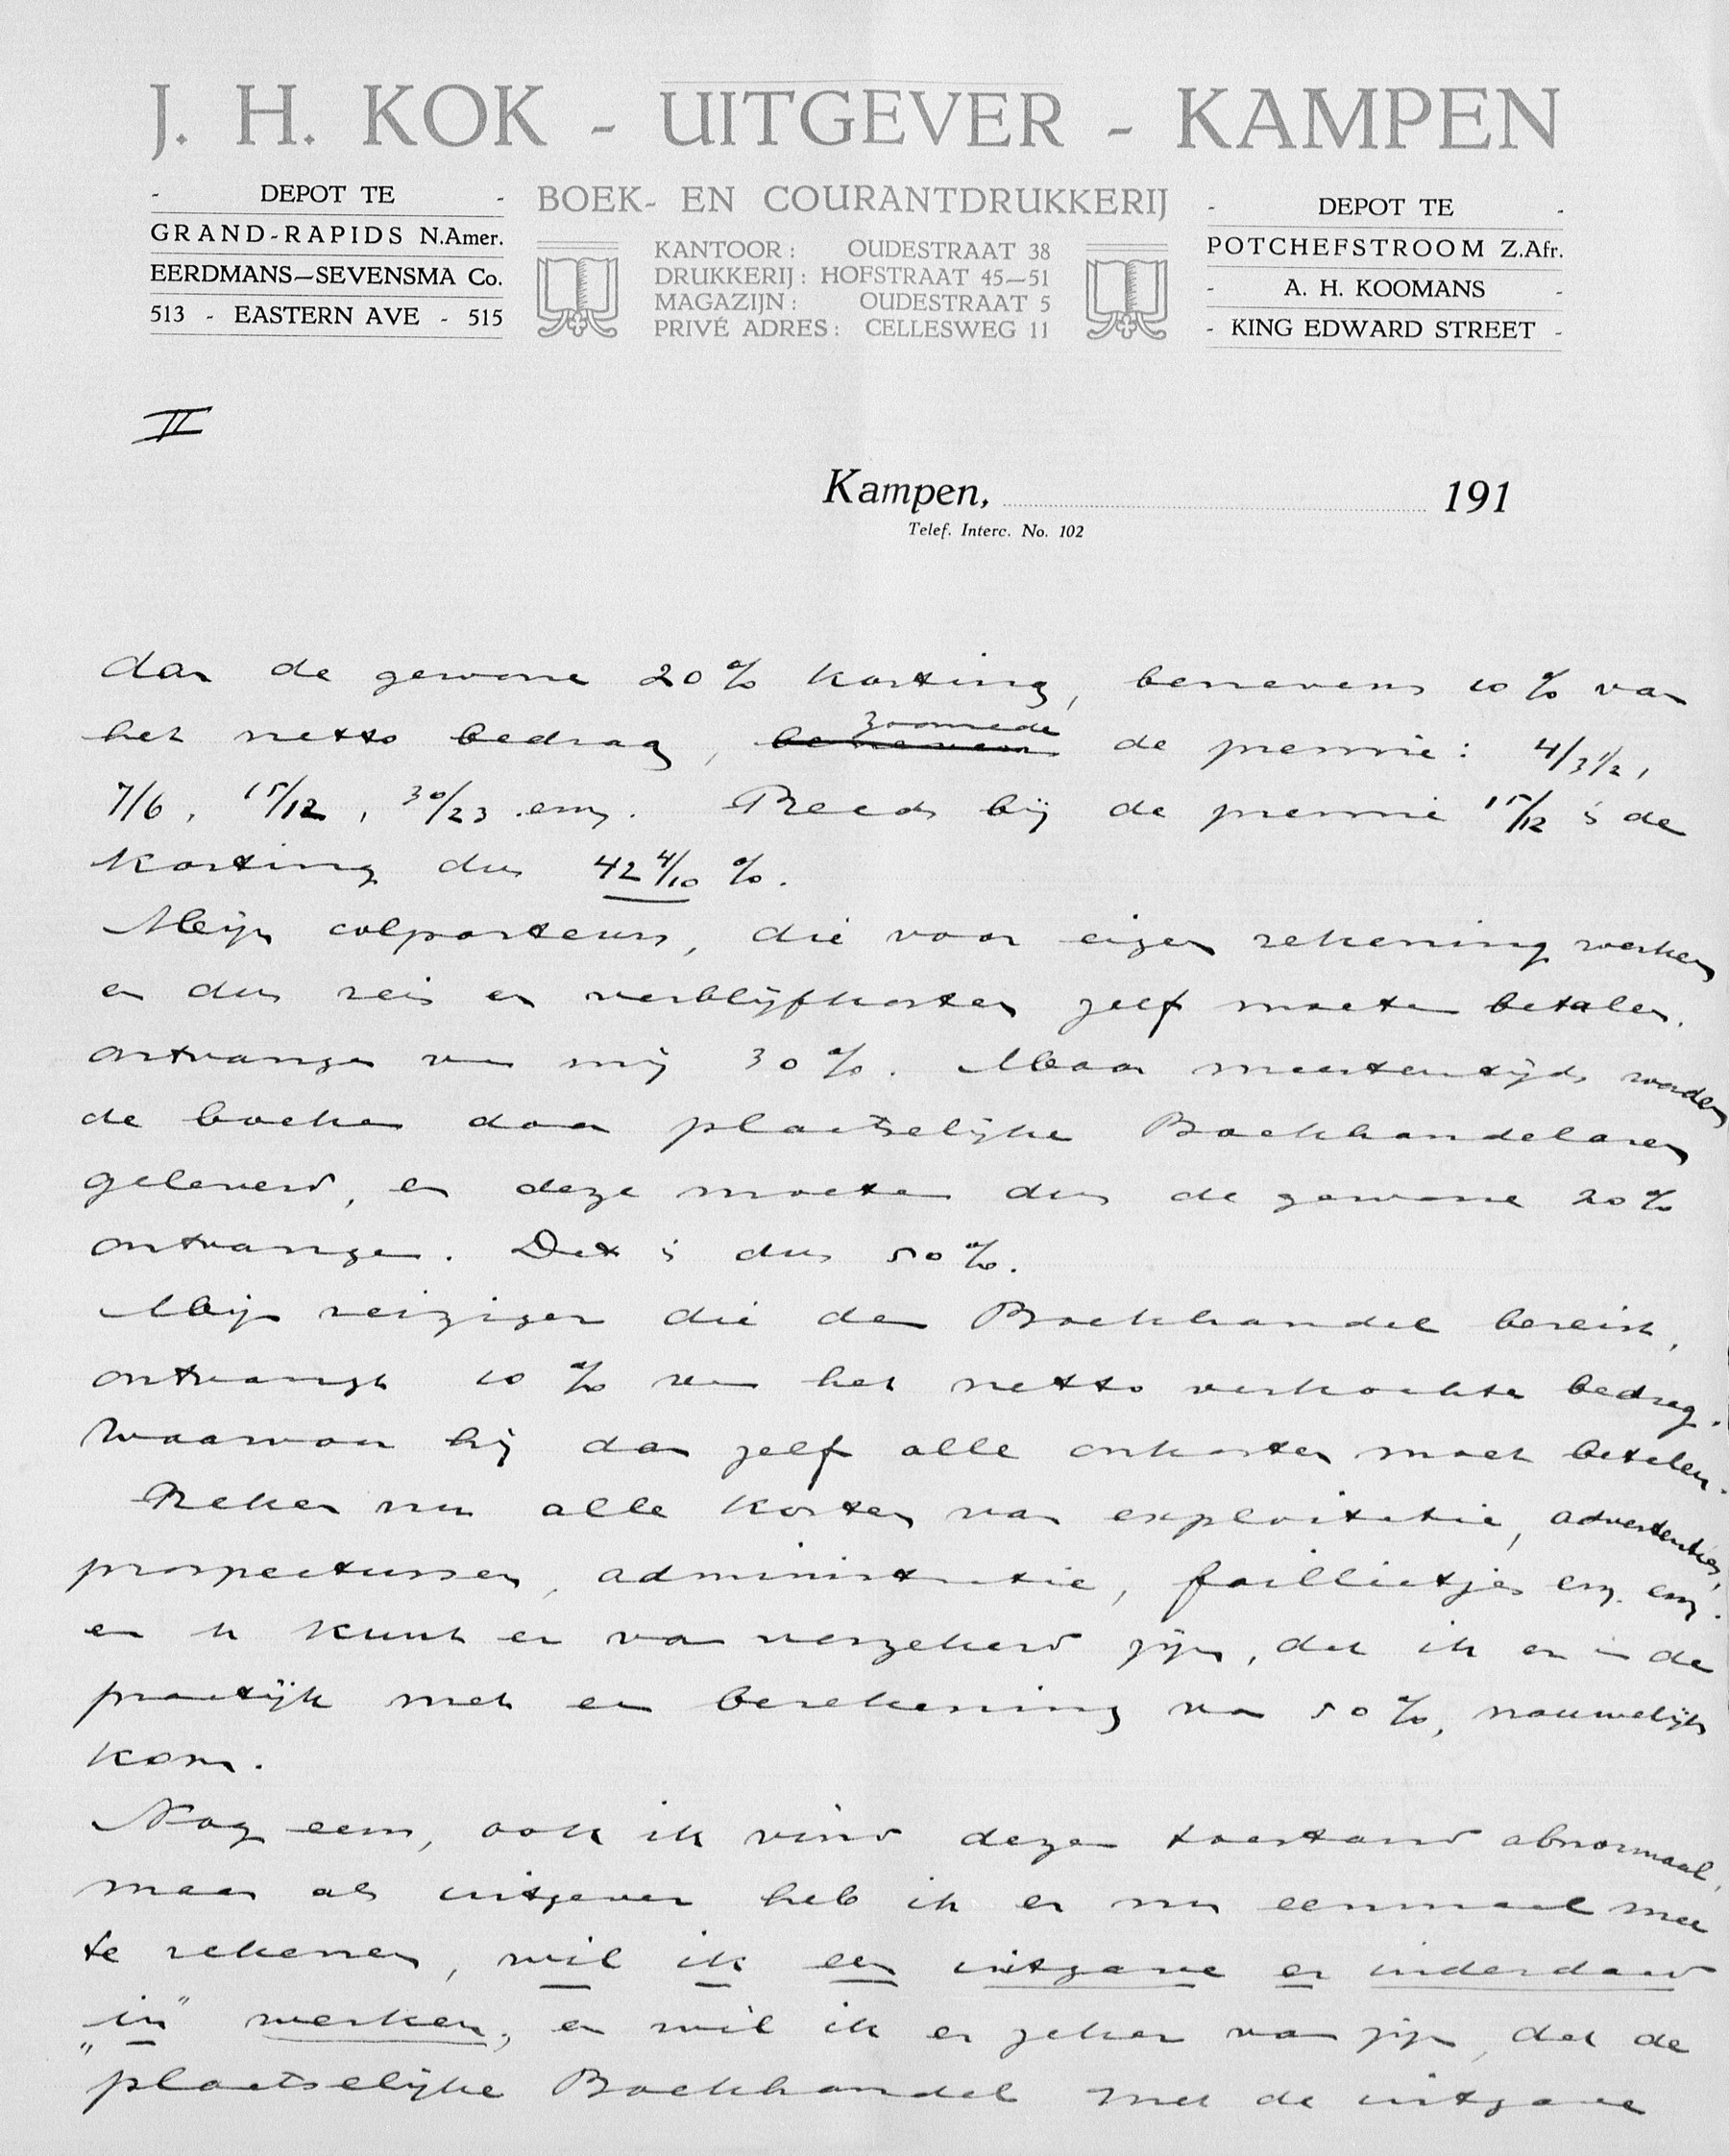 J. H. KOK - UITGEVER - KAMPEN
- DEPOT TE -
GRAND-RAPIDS N.Amer.
EERDMANS—SEVENSMA Co.
513 - EASTERN AVE - 515
BOEK- EN COURANTDRUKKERIJ
KANTOOR: OUDESTRAAT 38
DRUKKERIJ: HOFSTRAAT 45—51
MAGAZIJN: OUDESTRAAT 5
PRIVÉ ADRES: CELLESWEG 11
- DEPOT TE -
POTCHEFSTROOM Z.Afr.
- A. H. KOOMANS -
- KING EDWARD STREET -
II
Kampen, 191
Telef. Interc. No. 102
dan de gewone 20% korting, benevens 10% van
het netto bedrag, benevens zoomede de premie: 4/3½,
7/6, 15/12, 30/23 enz. Reeds bij de premie 15/12 is de
korting dus 42 4/10 %.
Mijn colporteurs, die voor eigen rekening werken
en dus reis en verblijfkosten zelf moeten betalen,
ontvangen van mij 30%. Maar meestentijds worden
de boeken door plaatselijke Boekhandelaren
geleverd, en deze moeten dus de gewone 20%
ontvangen. Dat is dus 50%.
Mijn reiziger die den Boekhandel bereist,
ontvangt 10% van het netto verkochte bedrag.
Waarvan hij dan zelf alle onkosten moet betalen.
Reken nu alle kosten van exploitatie, advertenties,
prospectussen, administratie, faillietjes enz. enz.
en u kunt er van verzekerd zijn, dat ik er in de
practijk met een berekening van 50%, nauwelijks
kom.
Nog eens, ook ik vind dezen toestand abnormaal,
maar als uitgever heb ik er nu eenmaal mee
te rekenen, wil ik een uitgave er inderdaad
„in" werken, en wil ik er zeker van zijn, dat de
plaatselijke Boekhandel met de uitgave